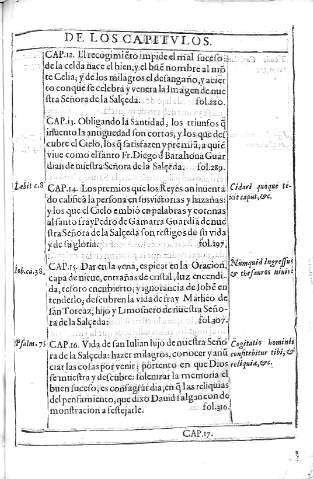 DE LOS CAPITVLOS.
CAP.12. El recogimiẽto impide el mal suceso
de la celda nace el bien, y el buẽ nombre al mõ
te Celia; y de los milagros el desangaño, y acier
to con que se celebra y venera la Imagen de nue
stra Señora de la Salçeda. fol.280.
CAP.13. Obligando la Santidad, los triunfos q̃
inuento la antiguedad son cortos, y los que des
cubre el Cielo, los q̃ satisfazen y premiã, a quiẽ
viue como el santo Fr. Diego d̃ Barahona Guar
dian de nuestra Señora de la Salçeda. fol.289.
Iob
CAP.14. Los premios que los Reyes an inuenta
do califica la persona en sus vitorias y hazañas:
y los que el Cielo embio en palabras y coronas
al santo fray Pedro de Gamarra Guardiã de nue
stra Señora de la Salçeda son testigos de su vida
y de su gloria. fol.297.
Cidaris quoque te-
xit caput, &c.
Iob.ca.38.
CAP.15. Dar en la vena, es picar en la Oracion,
capa de nieue, entrañas de cristal, luz encendi
da, tesoro encubierto, y ignorancia de Iob ẽ en
tenderlo, descubren la vida de fray Martico de
san Torcaz, hijo y Limosnero de nuestra Seño-
ra de la Salçeda. fol.307.
Nunquid ingressus
& thesauros niuis?
Psalm.75
CAP.16. Vida de san Iulian hijo de nuestra Seño
ra de la Salçeda: hazer milagros, conocer y anũ
ciar las cosas por venir; portento en que Dios
se muestra y descubre: solenizar la memoria el
buen suceso, es consagrar dia, en q̃ las reliquias
del pensamiento, que dixo Dauid salgan con de
monstracion a festejarle. fol.316.
Cogitatio hominis
confitebitur tibi, &
reliquiæ, &c.
CAP.17.